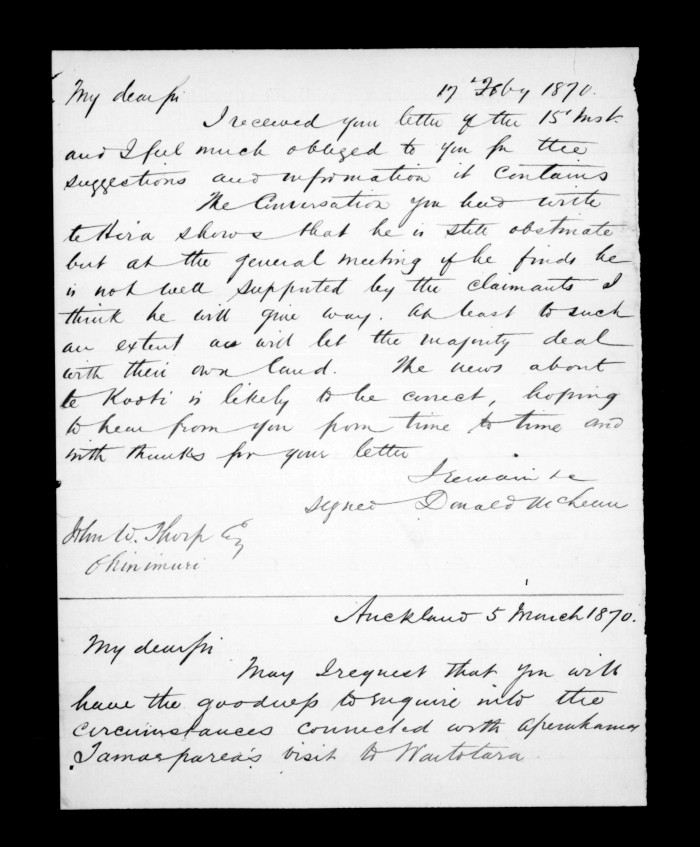 My dear Sir 17 Feby 1870.
I received your letter of the 15t Inst.
and I feel much obliged to you for the
suggestions and information it contains
The Conversation you had with
te Hira shows that he is still obstinate
but at the general meeting if he finds he
is not well supported by the claimants I
think he will give way. at least to such
an extent as will let the majority deal
with their own land. The news about
te Kooti is likely to be correct, hoping
to hear from you from time to time and
with thanks for your letter
I remain &c
signed Donald McLean
John W. Thorp Esq
Ohinimuri
Auckland 5 March 1870.
My dear Sir
May I request that you will
have the goodness to enquire into the
circumstances connected with
visit to Waitotara